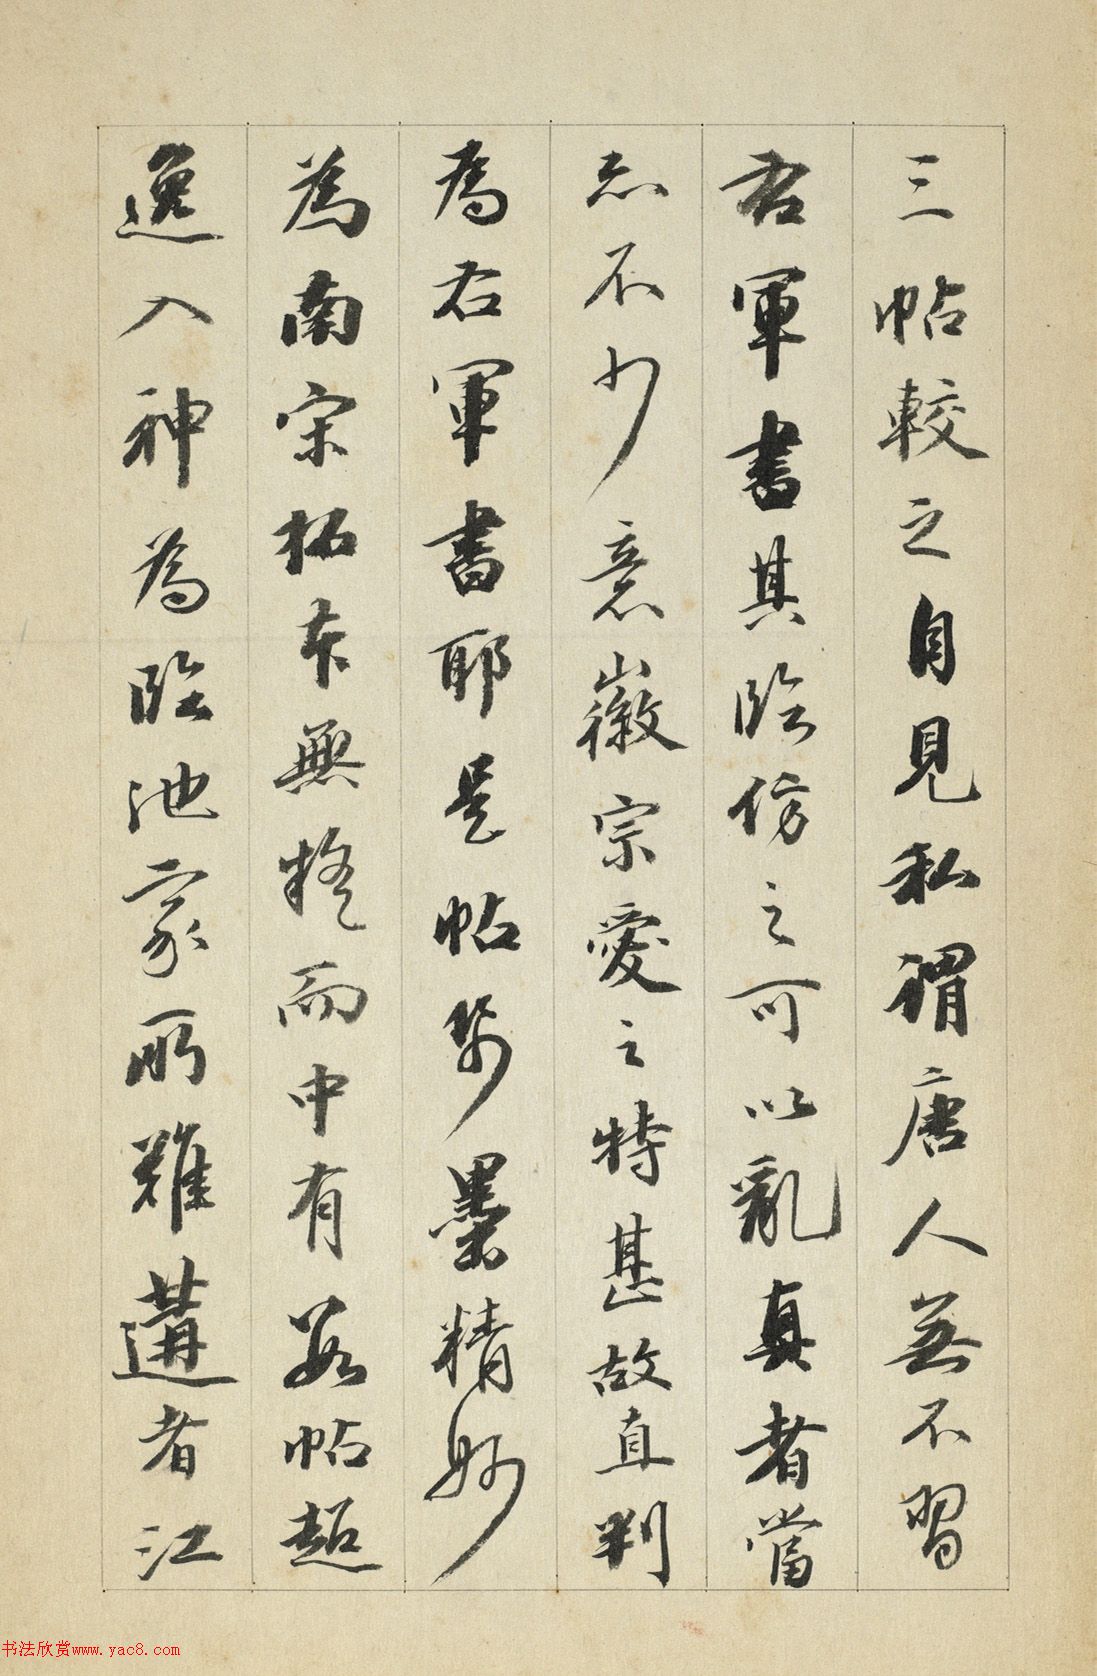 三帖較之自見私謂唐人無不習
右軍書其臨仿之可以亂真者當
亦不少意徽宗愛之特甚故直判
為右軍書耶是帖紙墨精妙
為南宋拓本無疑而中有數帖超
逸入神為臨池家所難遘者江
书法欣赏www.yac8.com